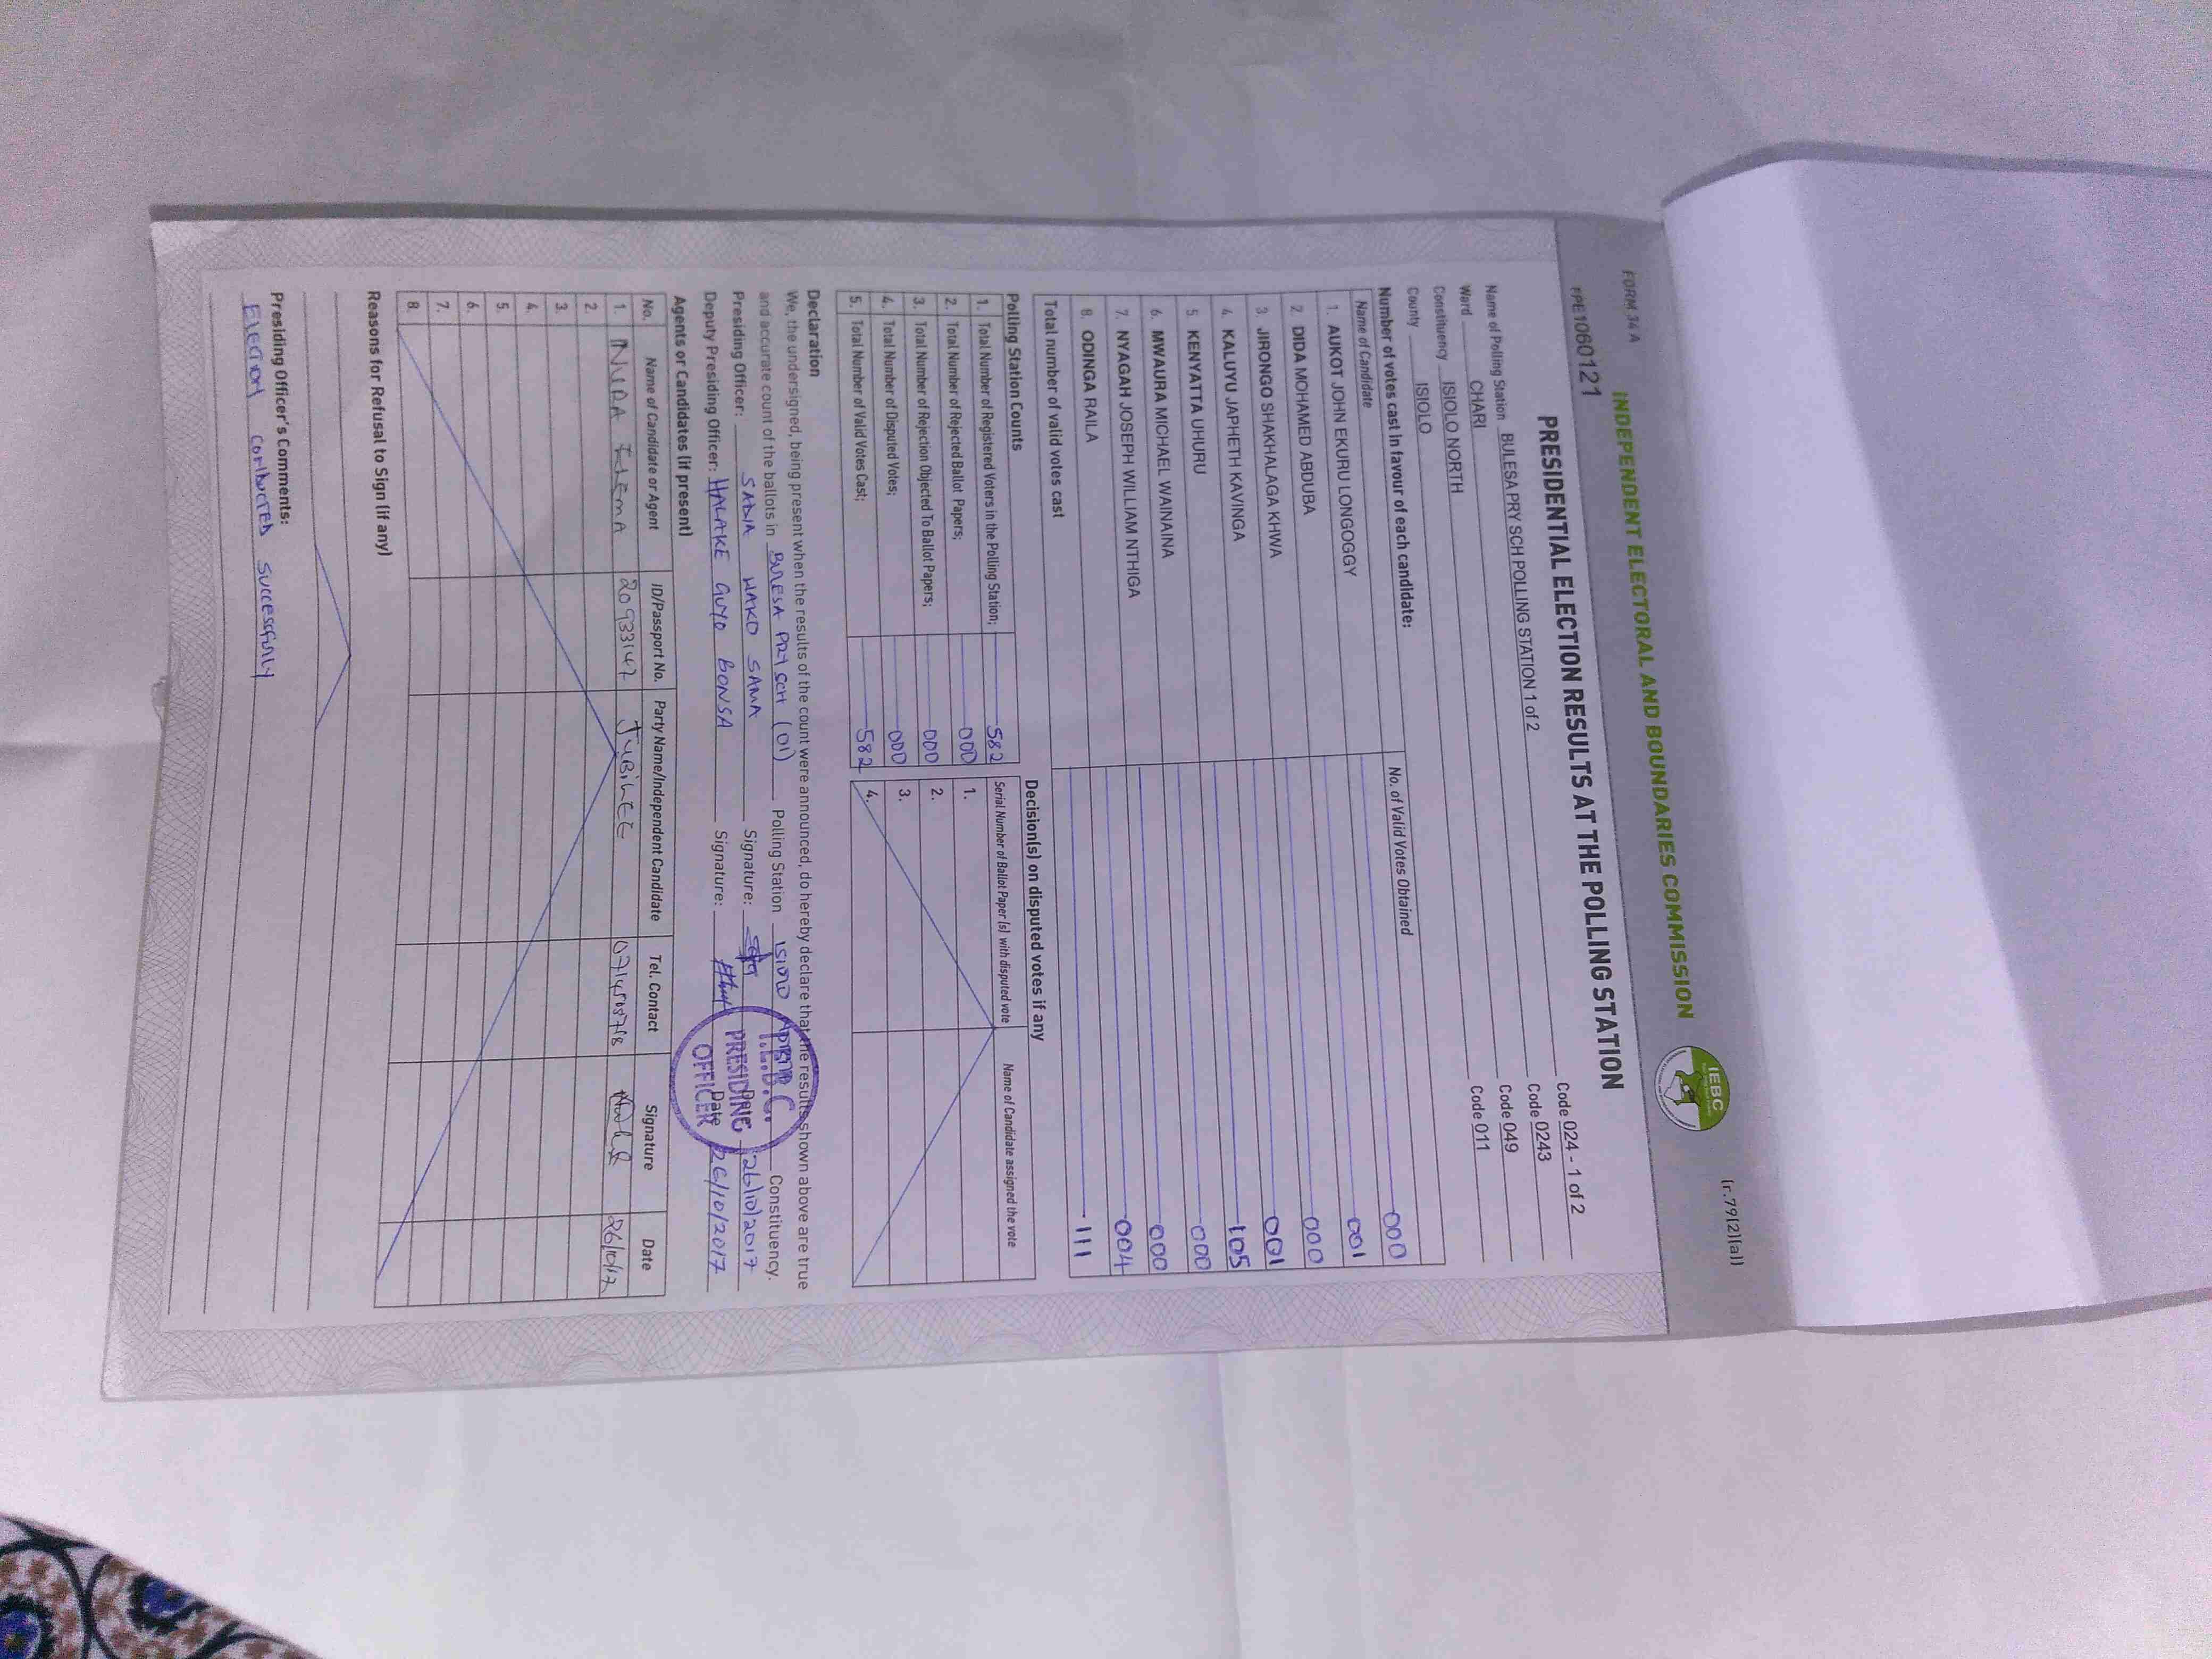 FORM 34 A
(r.79(2)(a))
INDEPENDENT ELECTORAL AND BOUNDARIES COMMISSION
IEBC
PRE1060121
PRESIDENTIAL ELECTION RESULTS AT THE POLLING STATION
Name of Polling Station BULESA PRY SCH POLLING STATION 1 of 2 Code 024 - 1 of 2
Ward CHARI Code 0243
Constituency ISIOLO NORTH Code 049
County ISIOLO Code 011
Number of votes cast in favour of each candidate:
Name of Candidate No. of Valid Votes Obtained
1. AUKOT JOHN EKURU LONGOGGY 000
2. DIDA MOHAMED ABDUBA 001
3. JIRONGO SHAKHALAGA KHWA 000
4. KALUYU JAPHETH KAVINGA 001
5. KENYATTA UHURU 105
6. MWAURA MICHAEL WAINAINA 000
7. NYAGAH JOSEPH WILLIAM NTHIGA 000
8. ODINGA RAILA 004
Total number of valid votes cast 111
Polling Station Counts
1. Total Number of Registered Voters in the Polling Station; 582
2. Total Number of Rejected Ballot Papers; 000
3. Total Number of Rejection Objected To Ballot Papers; 000
4. Total Number of Disputed Votes; 000
5. Total Number of Valid Votes Cast; 582
Decision(s) on disputed votes if any
Serial Number of Ballot Paper (s) with disputed vote Name of Candidate assigned the vote
1.
2.
3.
4.
Declaration
We, the undersigned, being present when the results of the count were announced, do hereby declare that the results shown above are true
and accurate count of the ballots in BULESA PRY SCH (01) Polling Station ISIOLO Constituency.
Presiding Officer: SADIA WAKO SAMA Signature: Date 26/10/2017
Deputy Presiding Officer: HALAKE GUYO BONSA Signature: Date 26/10/2017
I.E.B.C.
PRESIDING
OFFICER
Agents or Candidates (if present)
No. Name of Candidate or Agent ID/Passport No. Party Name/Independent Candidate Tel. Contact Signature Date
1. NURA 20933147 JUBILEE 26/10/17
2.
3.
4.
5.
6.
7.
8.
Reasons for Refusal to Sign (if any)
Presiding Officer's Comments:
ELECTION CONDUCTED SUCCESSFULLY